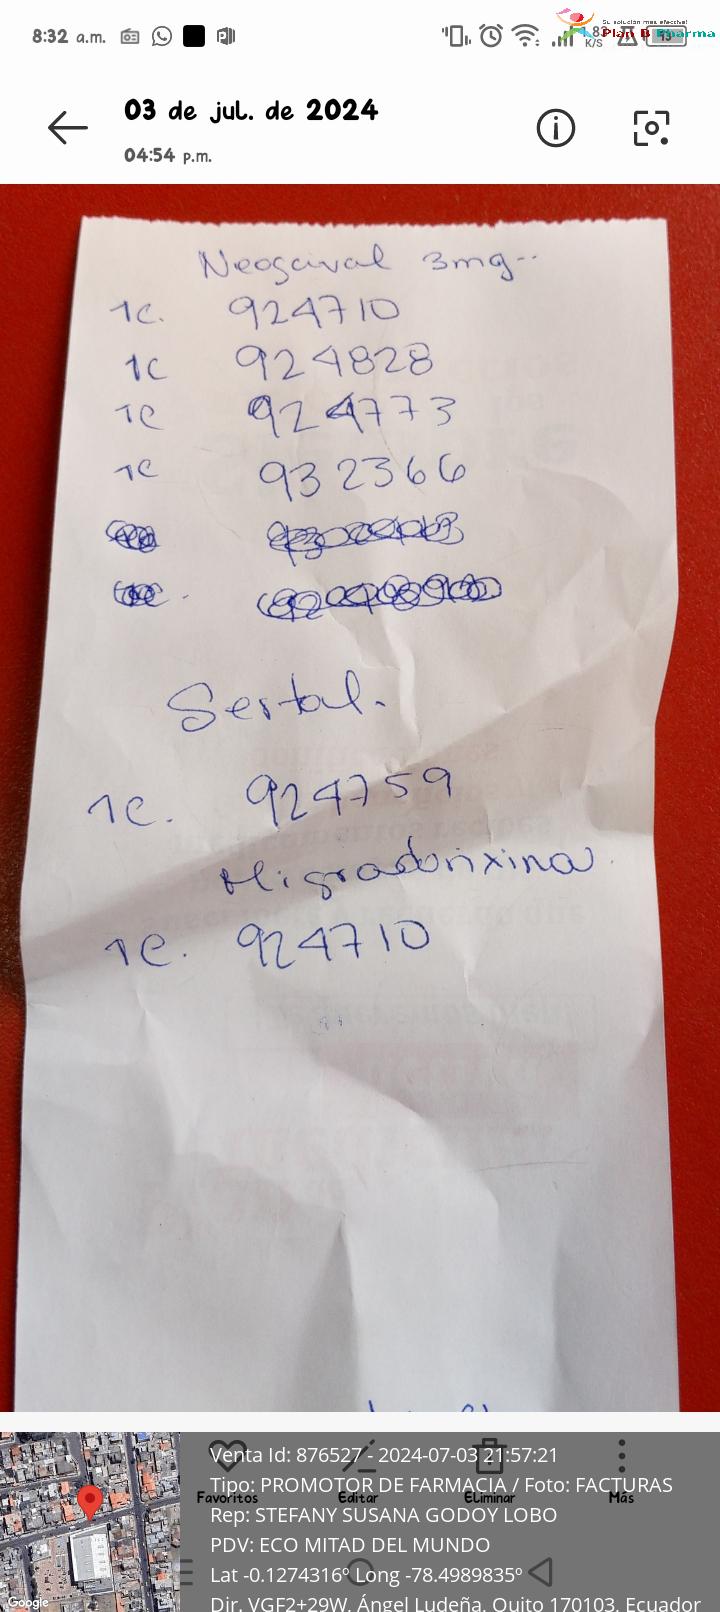 8:32 a.m.
83
K/S
13
Su solución más efectiva!
Plan B Pharma
03 de jul. de 2024
04:54 p.m.
Neogaival 3mg..
1c. 924710
1c 924828
1c 924773
1c 932366
Sertal.
1c. 924759
Migradorixina.
1c. 924710
Venta Id: 876527 - 2024-07-03 21:57:21
Tipo: PROMOTOR DE FARMACIA / Foto: FACTURAS
Favoritos Editar Eliminar Más
Rep: STEFANY SUSANA GODOY LOBO
PDV: ECO MITAD DEL MUNDO
Lat -0.1274316º Long -78.4989835º
Dir. VGF2+29W, Ángel Ludeña, Quito 170103, Ecuador
Google